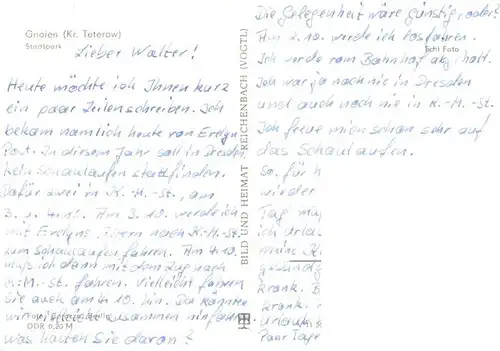 Gnoien (Kr. Teterow)
Stadtpark
Lieber Walter!
Heute möchte ich Ihnen kurz
ein paar Zeilen schreiben. Ich
bekam nämlich heute von Evelyn
Post. In diesem Jahr soll in Dresden
kein Schaulaufen stattfinden.
Dafür zwei in K.-M.-St., am
3. u. 4.10. Am 3.10. werde ich
mit Evelyns Eltern nach K.-M.-St.
zum Schaulaufen fahren. Am 4.10.
muß ich dann mit dem Zug nach
K.-M.-St. fahren. Vielleicht fahren
Sie auch am 4.10. hin. Da könnten
wir vielleicht zusammen hinfahren
DDR 0,20 M
was halten Sie davon?
BILD UND HEIMAT REICHENBACH (VOGTL)
Die Gelegenheit wäre günstig, oder?
Am 2.10. werde ich losfahren.
Ich werde vom Bahnhof abgeholt.
Echt Foto
Ich war ja noch nie in Dresden
und auch noch nie in K.-M.-St.
Ich freue mich schon sehr auf
das Schaulaufen.
So, für h
wieder
Tag
ich Urla
meine K
gesund
krank. B
krank.
Urlaub
Paar Tage